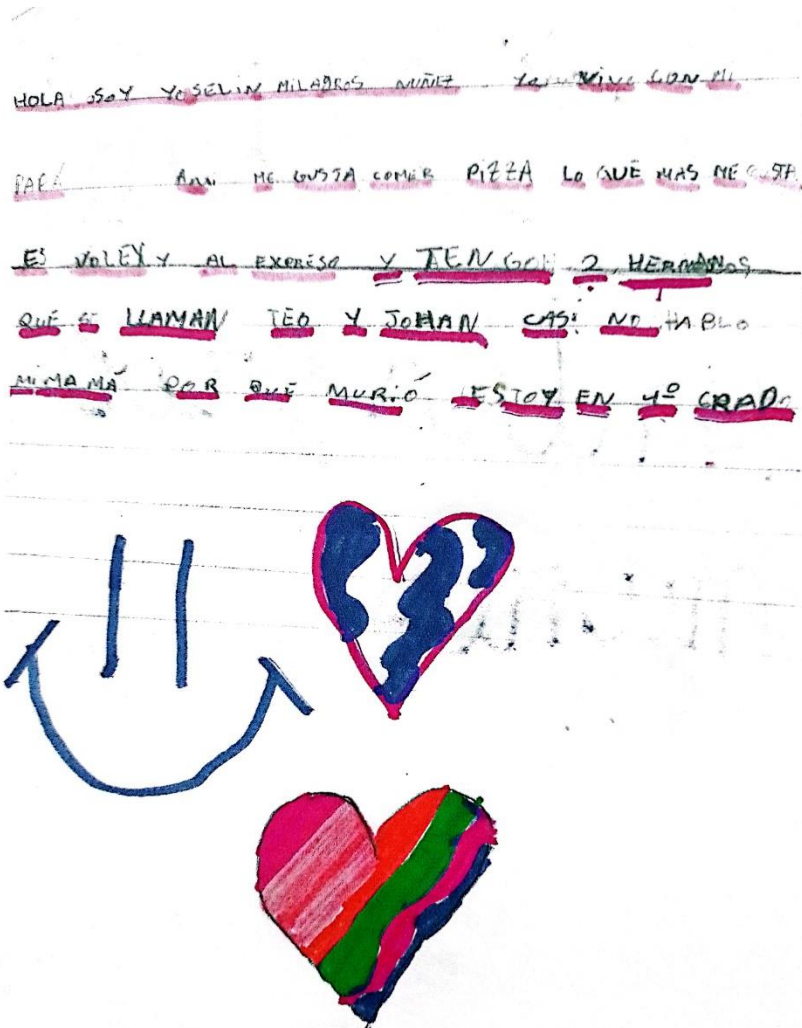 HOLA SOY YOSELIN MILAGROS NUÑEZ YO VIVO CON MI
PAPÁ A MI ME GUSTA COMER PIZZA LO QUE MAS ME GUSTA
ES VOLEY Y AL EXPRESO Y TENGO 2 HERMANOS
QUE SE LLAMAN TEO Y JOHAN CASI NO HABLO
MI MAMÁ POR QUE MURIÓ ESTOY EN 4º GRADO